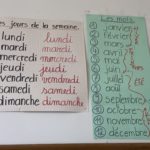 les jours de la semaine.
lundi lundi
mardi mardi
mercredi mercredi
jeudi jeudi
vendredi vendredi
samedi samedi
dimanche dimanche
Les mois
① janvier
② février
③ mars
④ avril
⑤ mai
⑥ juin
⑦ juillet
⑧ août
⑨ septembre
⑩ octobre
⑪ novembre
⑫ décembre
été